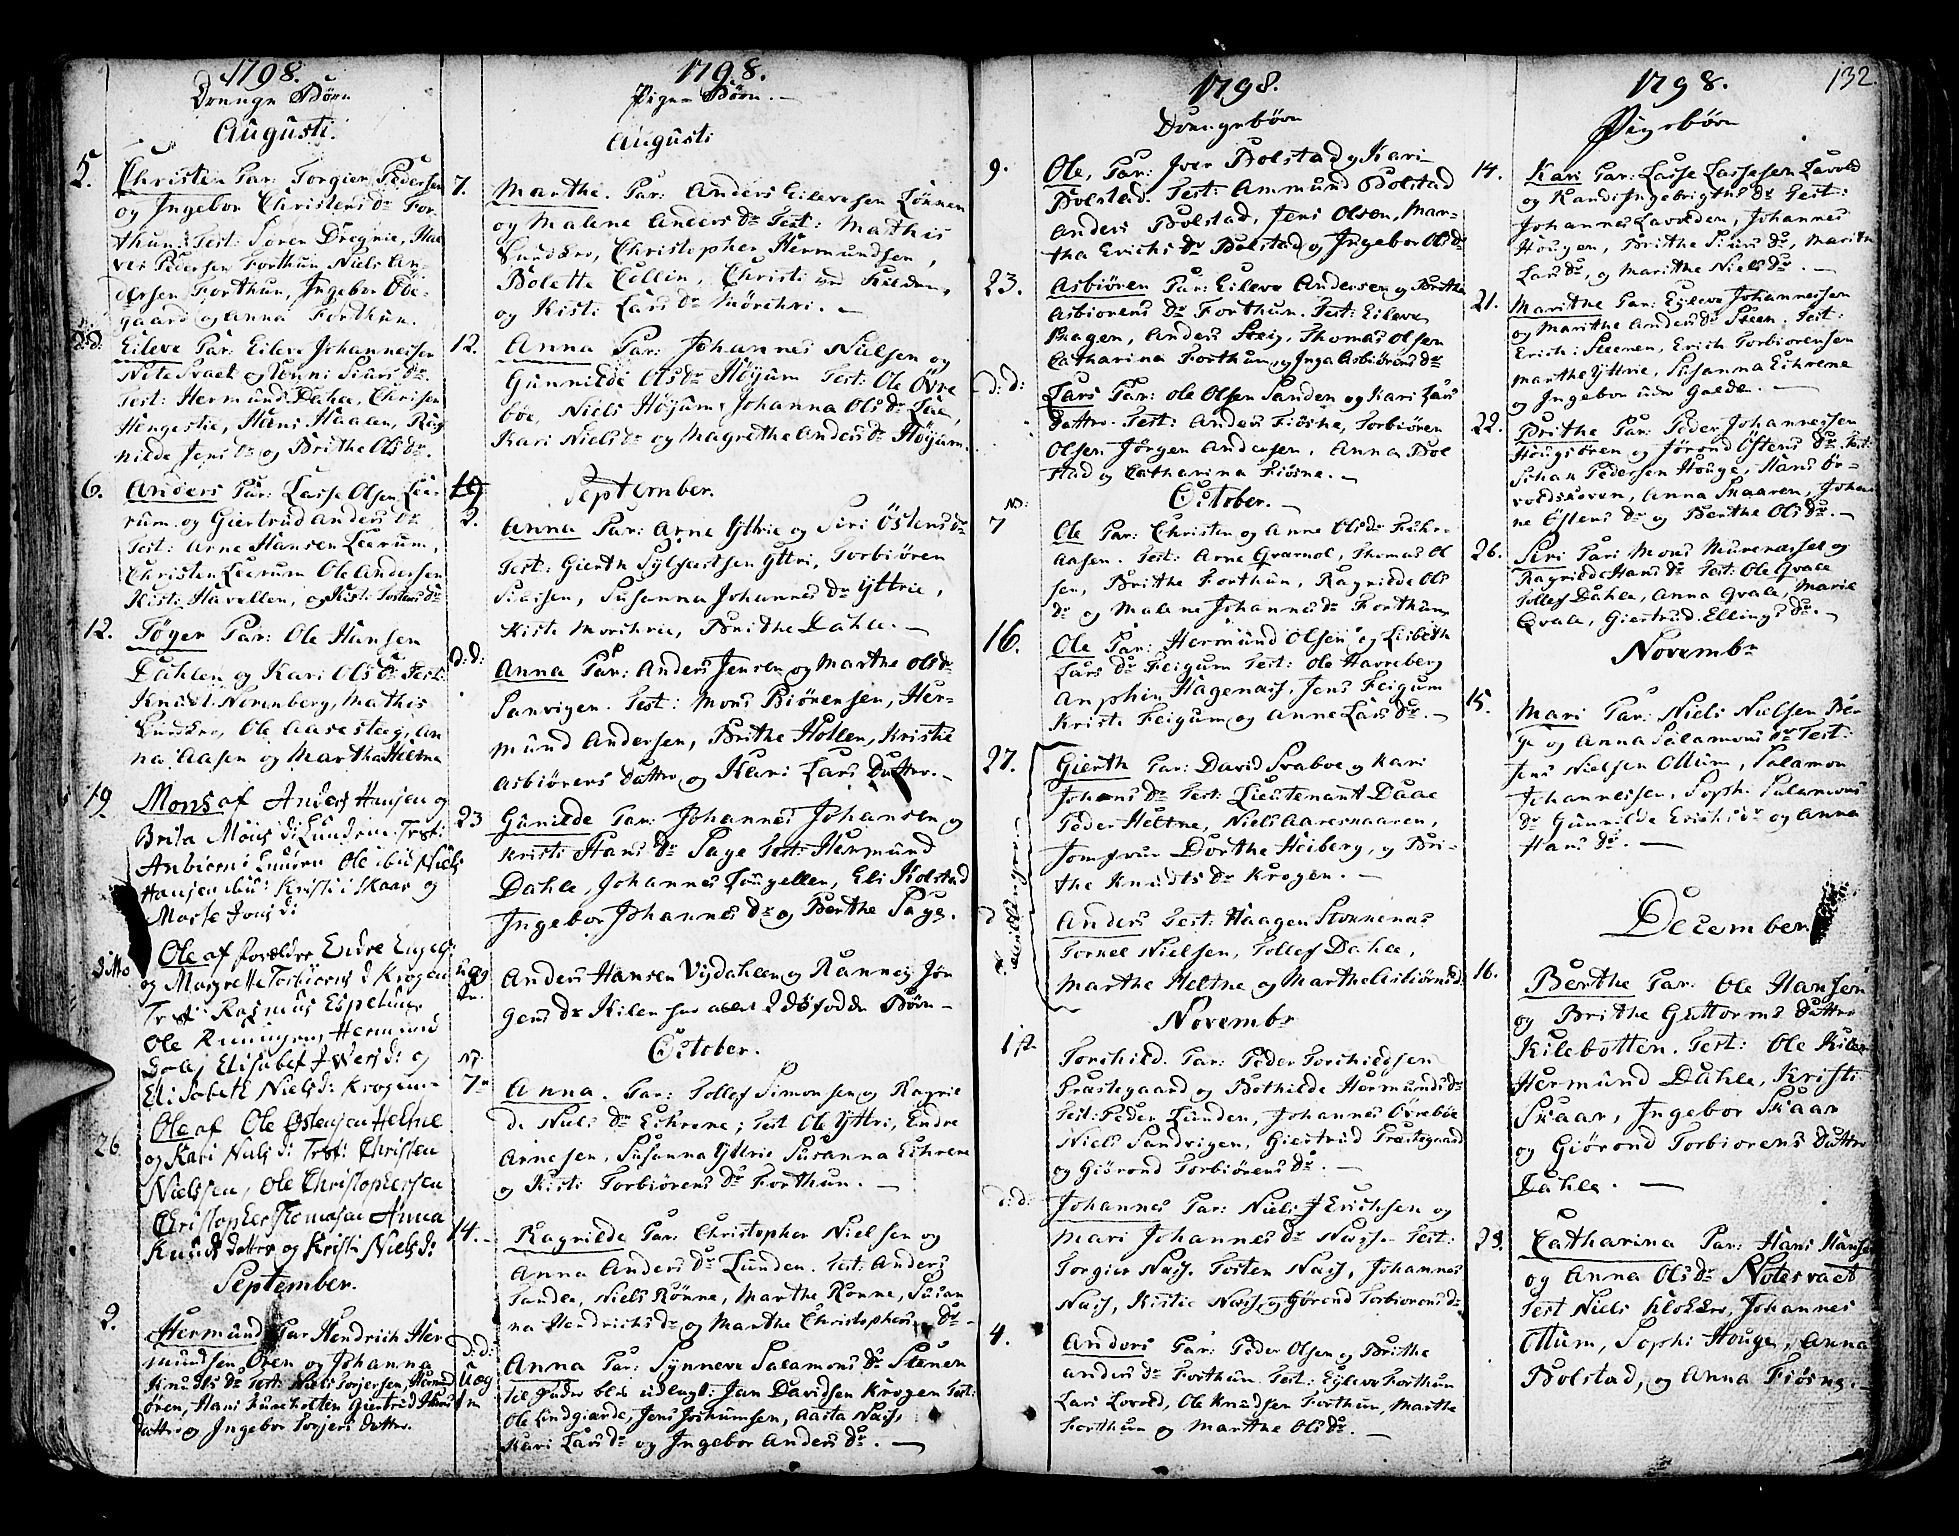 1798.
Drenge Børn
Augusti.
5. Christen Par: Torgier Pedersen
og Ingebor Christens Dr For-
thun. Test: Søren Dregnie, Hal
ver Pedersen Forthun Niels An-
dersen Forthun, Ingebor Øde-
gaard og Anna Forthun.
d:d: Eileve Par: Eileve Johannessen
Notesvaet og Siurs Dr
Test: Hermund Dahle, Christen
Hengestie, Hans Haalen, Rag
nilde Jens Dr og Brithe Ols Dr.
6. Anders Par: Lasse Olsen Lee-
rum og Giertrud Anders Dr
Test: Arne Hansen Leerum,
Christen Leerum Ole Andersen
Kisti Havellen, og Kisti Tostens Dr
12. Tøger Par: Ole Hansen
Dahlen og Kari Ols Dr Test:
Knud Norenberg, Mathis
Lundero, Ole Aasestæg, An
na Aasen og Martha Heltne
19. Mons af Anders Hansen og
Brita Mons di Lundene Test:
Anbiørn Ole Niels
Hansen Kristi Skaar og
Marte Jons di
ditto Ole af forældre Endre Engels:
og Margrette Torbiørns d Krogen
Test Rasmus Espelun
Ole Rriingen, Hermund
Elisabet Iwers di og
Elisabeth Niels di Krogen
26. Ole af Ole Østensen Heltne
og Kari Niels di Test: Christen
Nielssen, Ole Christophersen
Christopher Thomasen Anna
Knuds datter og Kristi Niels di
September.
2. Hermund Par Hendrich Her
mundsen Øren og Johanna
Knudts Dr Test: Niels Torjersen, Hermd
Øren, Hans Giertrud Hans
datter og Ingebor Torjers datter.
1798.
Pige-Børn.
Augusti
7. Marthe. Par: Anders Eilevesen Lønnen
og Malene Anders Dr Test: Mathis
Lundero, Christopher Hermundsen,
Bolette Collin, Christi ved Fielden,
og Kisti Lars Dr Mørchri.
12. Anna Par: Johannes Nielsen og
Gunnilde Ols Dr Høyum Test: Ole Øvre
bøe, Niels Høyum Johanna Ols Dr Lae
Kari Niels Dr og Magrethe Anders Dr Høyum.
September.
2. Anna Par: Arne Yttrie og Seri Østens Dr
Test: Gierth Sylfestsen Yttri, Torbiøren
Siursen, Susanna Johannes Dr Yttrie,
Kiste Morchrie, Brithe Dahle.
d:d: Anna Par: Anders Jensen og Marthe Ols Dr
Sanvigen. Test: Mons Biørensen, Her-
mund Andersen, Brithe Hollen, Kristie
Asbiørens Datter og Kari Lars Datter.
23 Gunilde Par: Johannes Johansen og
Kristi Hans Dr Sage Test: Hermund
Dahle, Johannes Lougellen, Eli Bolstad
Ingebor Johannes Dr og Berthe Sage.
Anders Hansen Vigdahlen og Ranneig Jøn
gens Dr Kilen har avlet 2 dødfødde Børn
October.
7. Anna. Par: Tollef Simonsen og Ragnil
de Niels Dr Eikrene; Test Ole Yttri, Endre
Arnesen, Susanna Yttrie Susanna Eikrene
og Kisti Torbiørens Dr Forthun.
14. Ragnilde Par: Christopher Nielsen og
Anna Anders Dr Lunden. Test: Anders
Sandee, Niels Rønne, Marthe Rønne, Susan
na Hendrichs Dr og Marthe Christophers Dr
d:d: Uæg Anna Par: Synneve Salamons Dr Steenen
til Fader blev udlagt: Jan Davidsen Krogen Test:
Ole Lindgiærde, Jens Jokumsen, Aasta Næss,
Kari Lars Dr og Ingebor Anders Dr.
1798.
Drengebørn
9. Ole, Par: Iver Bolstad og Kari
Bolstad. Test: Ammund Bolstad
Anders Bolstad, Jens Olsen, Mar-
tha Erichs Dr Bolstad og Ingebor Ols Dr
23. Asbiøren Par: Eileve Andersen og Brithe
Asbiorens Dr Forthun. Test: Eileve
Bhagen, Anders Steig, Thomas Olsen
Catharina Forthun og Inga Asbiørens Dr
d:d: Lars Par: Ole Olsen Sanden og Kari Lars
Datter. Test: Anders Fiøsne, Torbiøren
Olsen Jørgen Andersen, Anna Bol
stad og Catharina Fiøsne.
October.
7 Ole Par: Christen og Anne Ols Dr Fuhr-
aasen. Test: Arne Qvarnol, Thomas Ol
sen, Brithe Forthun, Ragnilde Ols
Dr og Malene Johannes Dr Forthun,
16. Ole Par: Hermund Olsen og Lisbeth
Lars Dr Feigum Test: Ole Havreberg
Anphin Hagenæss, Jens Feigum
Kristi Feigum og Anne Lars Dr.
27. Gierth Par: David Svaboe og Kari
Johans Dr Test: Lieutenant Daae
Peder Heltne, Niels Aareskaaren,
Jomfrue Dorthe Heiberg, og Bri-
the Knudts Dr Krogen.
d Anders Test: Haagen Stonnenas
Tornel Nielsen, Tollef Dahle,
Marthe Heltne og Marthe Asbiørns Dr
Tvillingern
Novembr
1st Torchild. Par: Peder Torchildsen
Præstegaard og Bothilde Hermunds Dr
Test: Peder Lunden, Johannes Øvrebøe
Niels Sandvigen, Giertrud Præstegaard
og Giørond Torbiørens Dr.
d:d: Johannes Par: Niels J Erichsen og
Mari Johannes Dr Næss Test:
Torgier Næss. Tosten Næss, Johannes
Næss, Kistie Næss og Gørond Torbiorens Dr
4. Anders Par: Peder Olsen og Brithe
Anders Dr Forthun. Test: Eyleve Forthun
Lars Lovold, Ole Knudsen Forthun, Marthe
Forthun og Marthe Ols Dr.
1798. 132
Pigebørn
14. Kari Par: Lasse Lassesen Lavold
og Randi Ingebrigths Dr Test:
Johannes Lavolden, Johannes
Hougen, Brithe Siurs Dr, Marithe
Lars Dr, og Marithe Niels Dr.
21. Marithe Par: Eyleve Johannessen
og Marithe Anders Dr Steen. Test:
Erich Steenen, Erich Torbiorensen
Marthe Yttrie, Susanna Eikrene
og Ingebor
22. Brithe Par: Peder Johannessen
Hougsøren og Jørond Østens Dr. Test:
Johan Pedersen Houge, Hans Ør-
voldskoven, Anna Skaaren, Johan
ne Østens Dr og Berthe Ols Dr.
26. Seri Par: Mons Murenæsset og
Ragnilde Hans Dr Test: Ole Qvale
Tollef Dahle, Anna Qvale, Marie
Qvale, Giertrud Ellings Dr.
Novembr
15. Mari Par: Niels Nielsen Bör
ge og Anna Salamons Dr Test:
Jens Nielsen Ottum, Salamon
Johannessen, Soph: Salamons
Dr Gunnilde Erichs Dr og Anna
Hans Dr.
December.
16. Berthe Par: Ole Hansen
og Brithe Guttorms Datter
Kilebotten. Test: Ole Kilen
Hermund Dahle, Kristi
Skaar, Ingebor Skaar
og Giørond Torbiorens Datter
Dahle.
23. Catharina Par: Hans Hansen
og Anna Ols Dr Notesvaet
Test Niels Klokkero, Johannes
Ottum, Soph: Houge, Anna
Bolstad, og Anna Fiøsne.